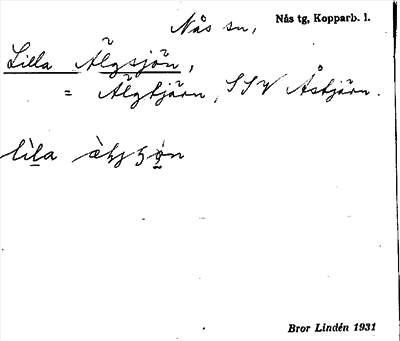 Nås sn, Nås tg, Kopparb. l.
Lilla Älgsjön,
= Älgtjärn, SSV Åstjärn.
Bror Lindén 1931